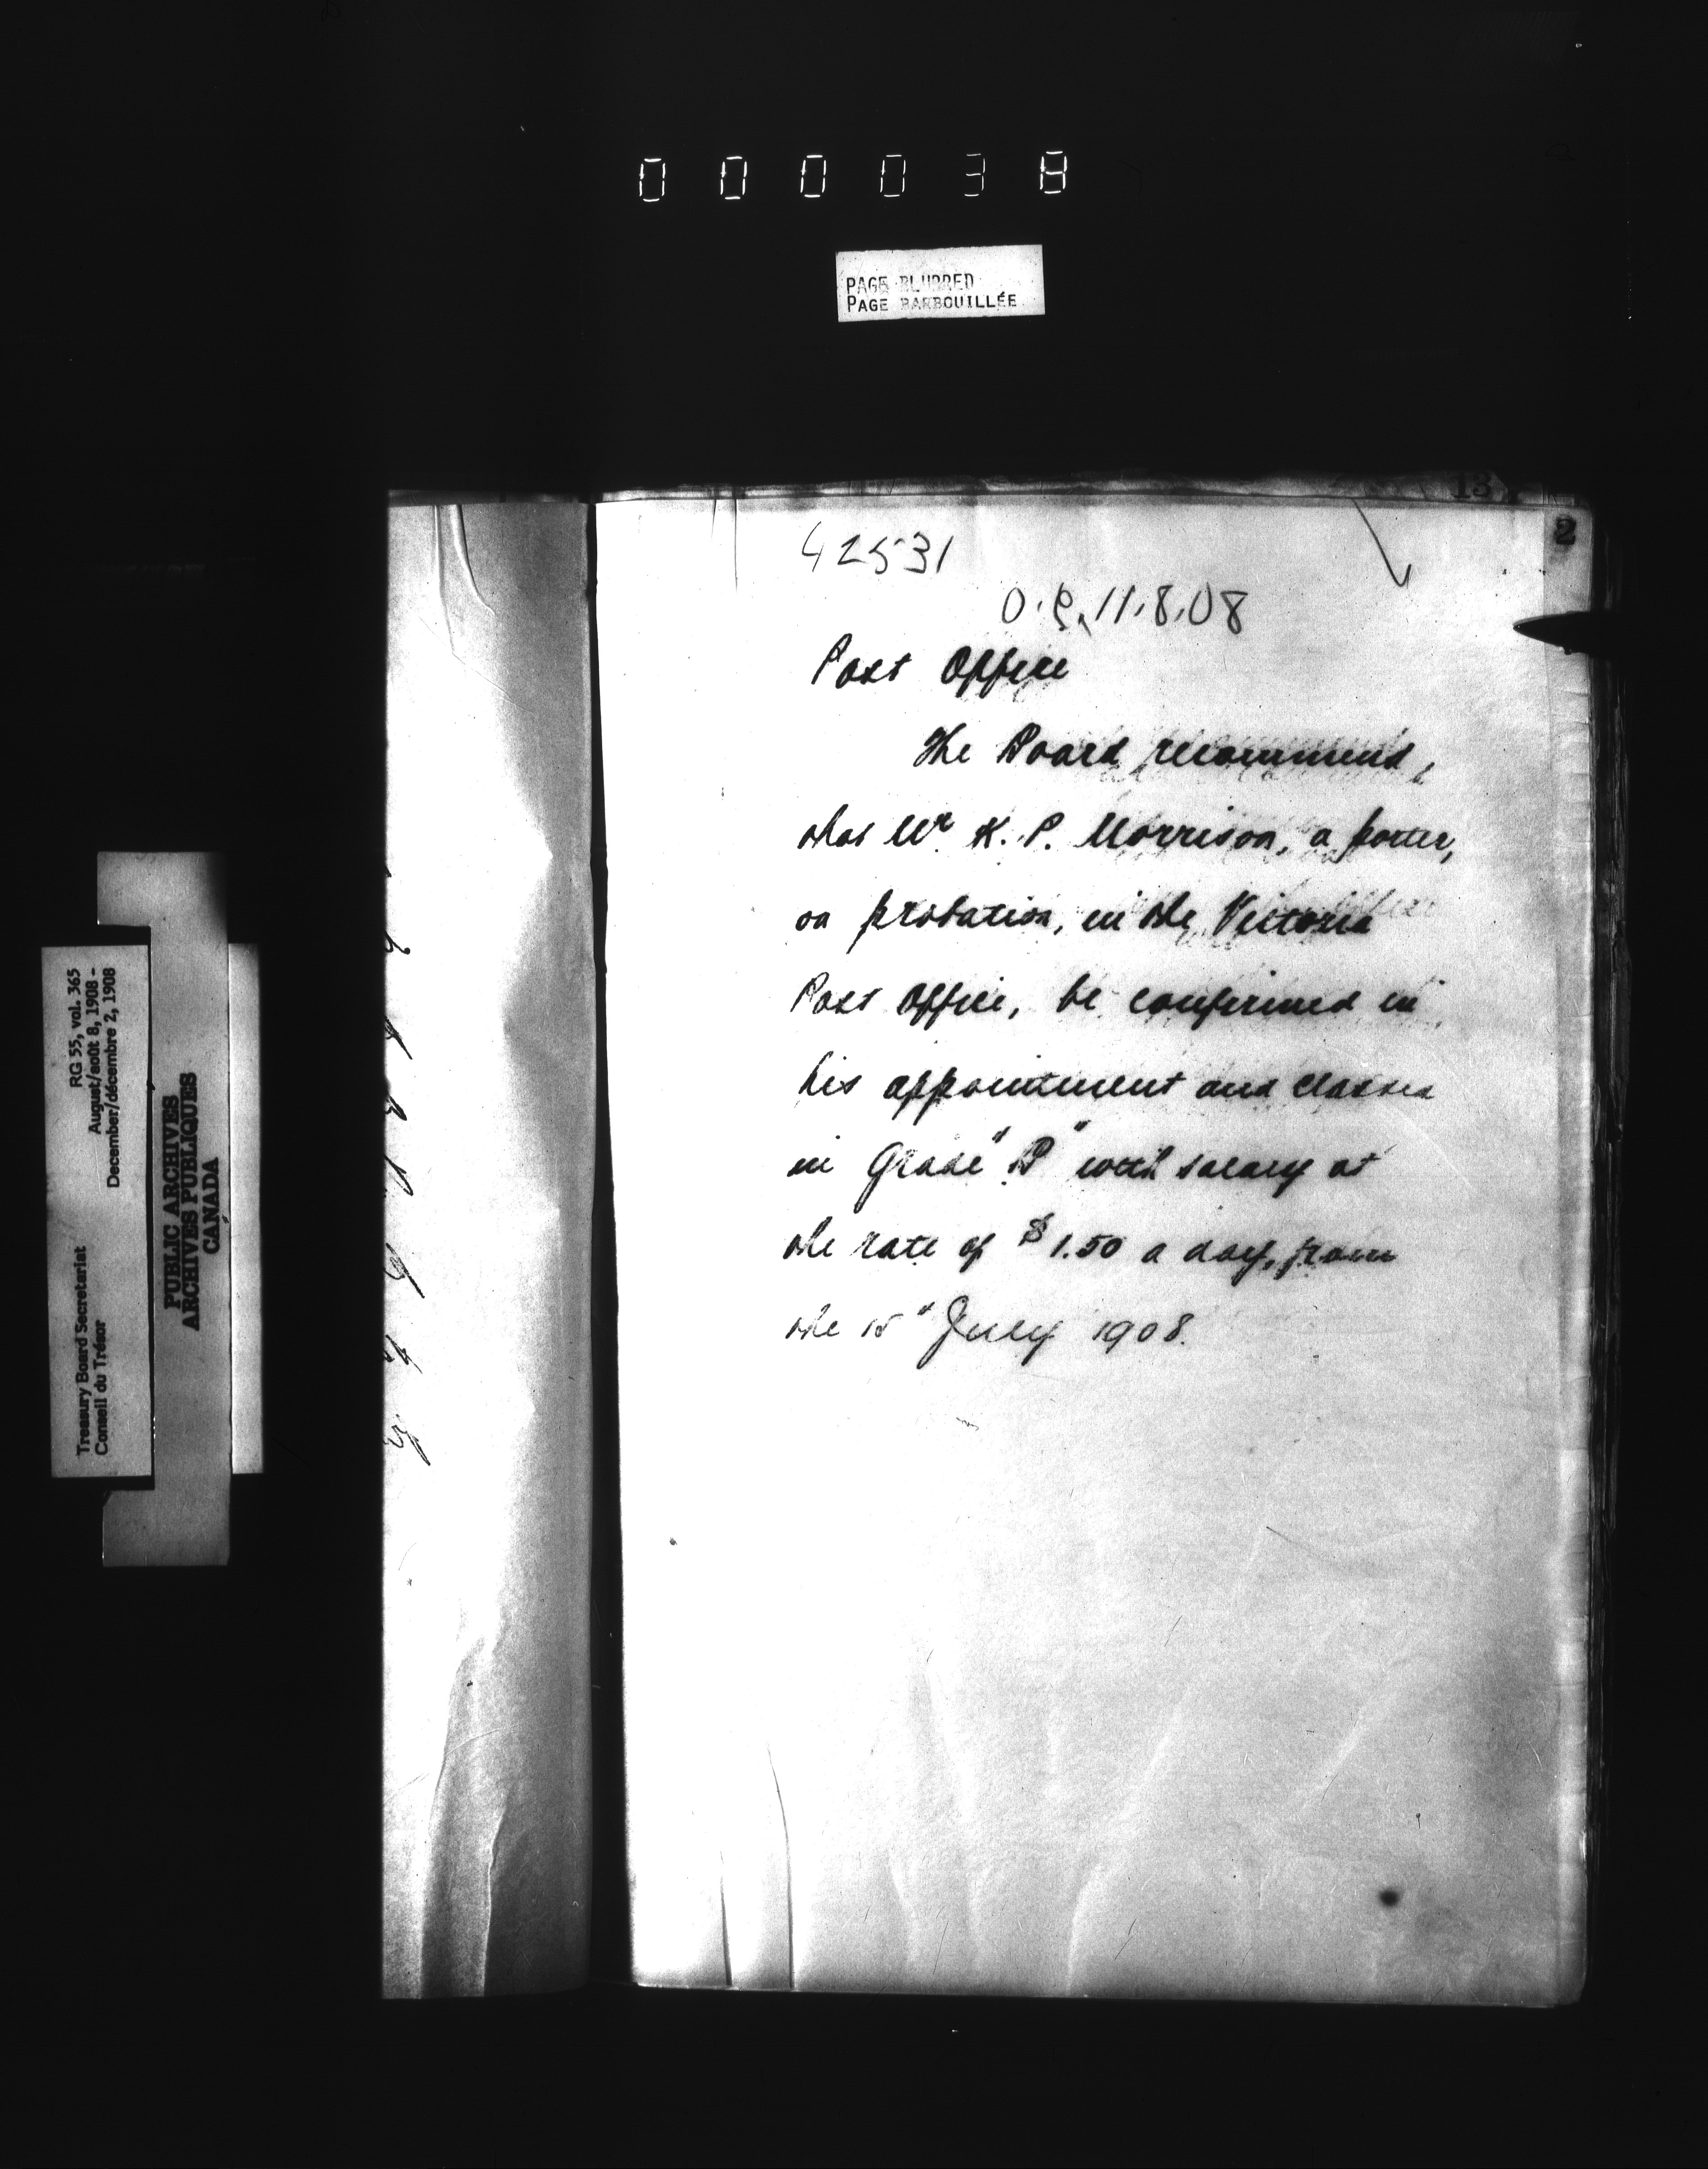 000038
PAGE BLURRED
PAGE BARBOUILLÉE
13
2
42531
O.C. 11.8.08
Post Office
The Board recommend,
that Mr K. P. Morrison, a porter,
on probation, in the Victoria
Post Office, be confirmed in
his appointment and classed
in Grade "B" with salary at
the rate of $1.50 a day, from
the 15" July 1908.
Treasury Board Secretariat
Conseil du Trésor
RG 55, vol. 365
August/août 8, 1908 -
December/décembre 2, 1908
PUBLIC ARCHIVES
ARCHIVES PUBLIQUES
CANADA